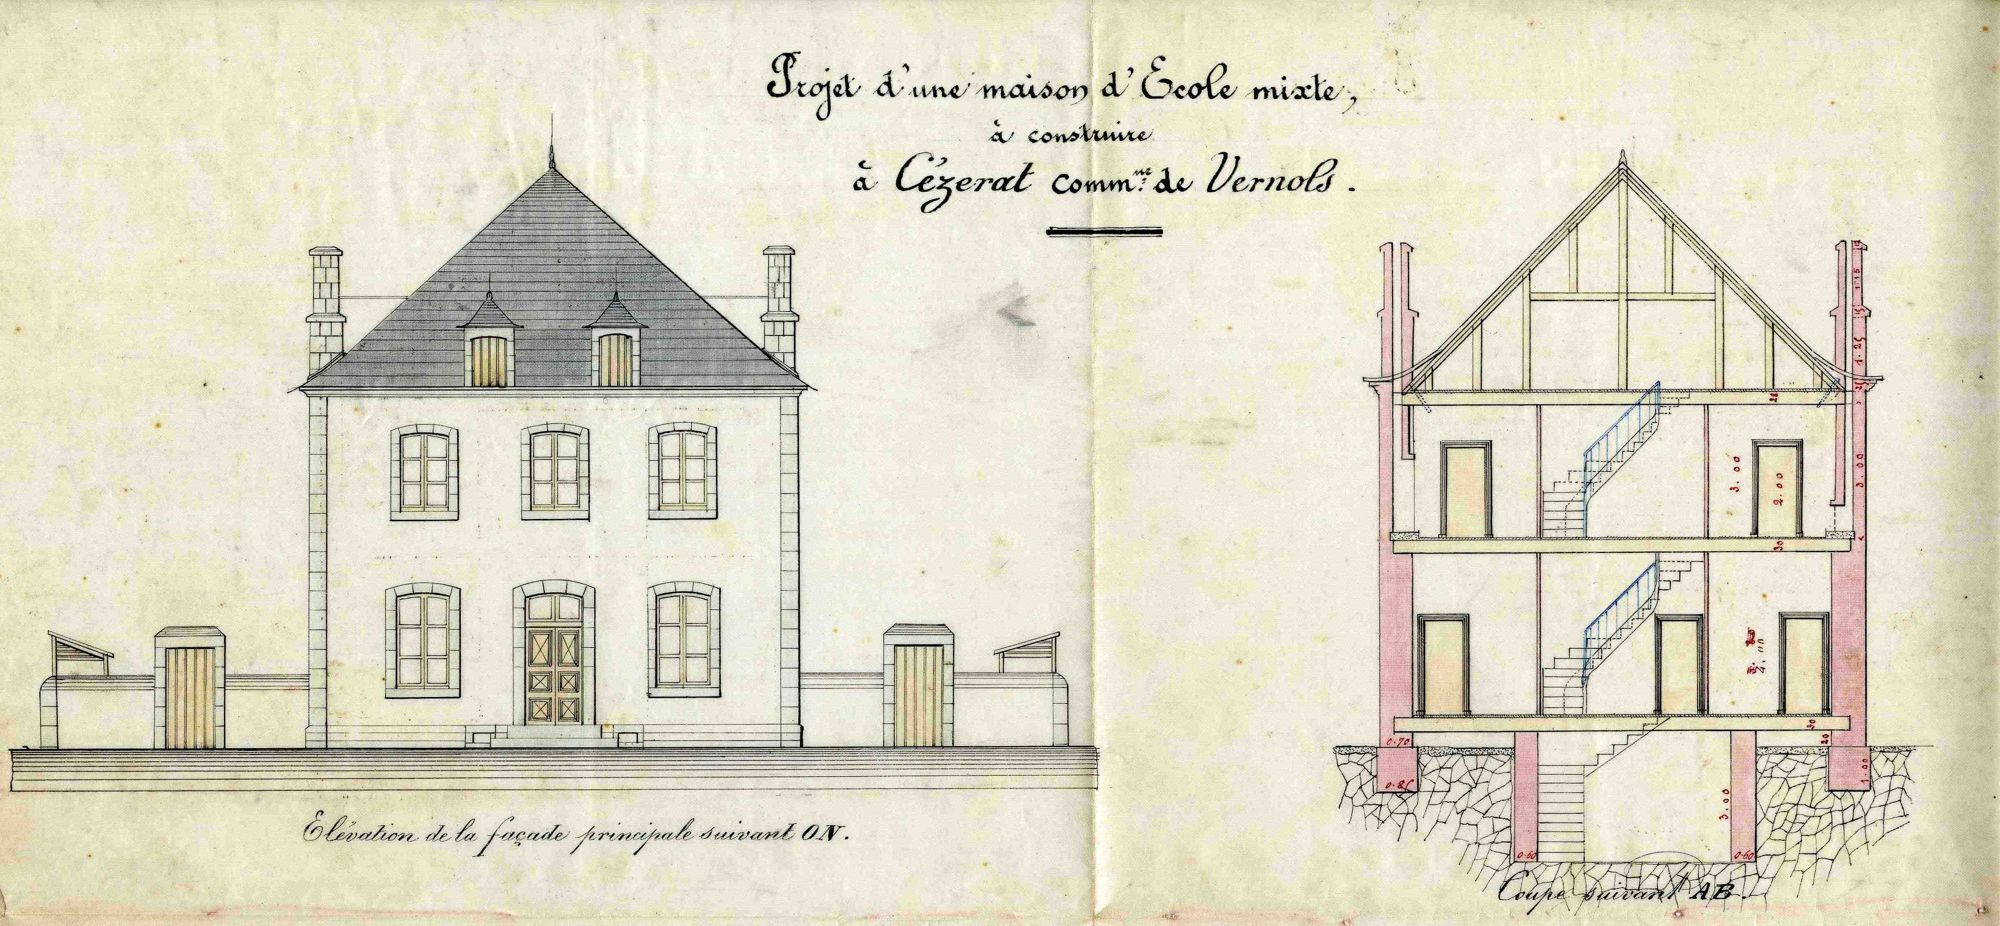 Projet d'une maison d'Ecole mixte,
à construire
à Cézerat comm.ne de Vernols.
Elévation de la façade principale suivant ON.
Coupe suivant AB.
1.15
1.25
25
28
3.00
3.00
2.00
30
4.00
30
20
0.70
0.85
1.00
3.00
0.60
0.60